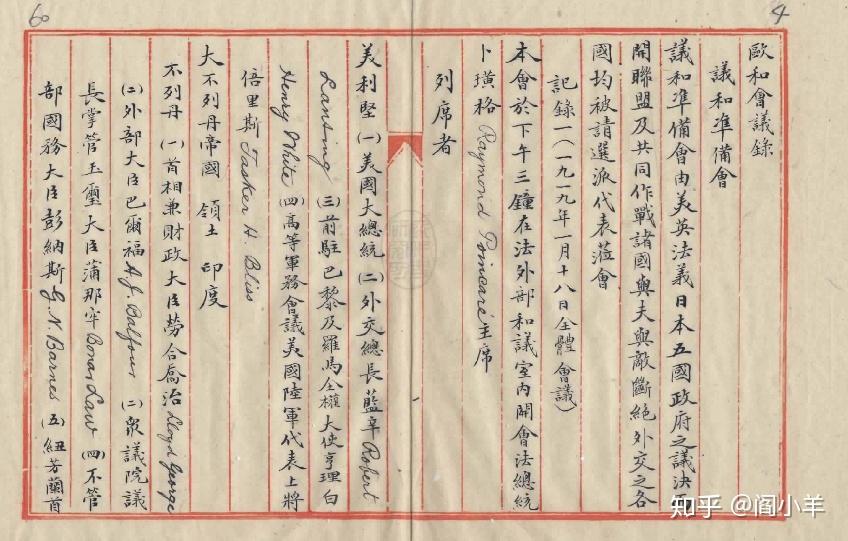 4
歐和會議錄
議和準備會
議和準備會由美英法義日本五國政府之議決
開聯盟及共同作戰諸國與夫與敵斷絕外交之各
國均被請選派代表蒞會
記錄一(一九一九年一月十八日全體會議)
本會於下午三鐘在法外部和議室內開會法總統
卜璜格 Raymond Poincaré 主席
列席者
美利堅 (一)美國大總統 (二)外交總長藍辛 Robert
Lansing (三)前駐巴黎及羅馬全權大使亨理白
Henry White (四)高等軍務會議美國陸軍代表上將
倍里斯 Tasker H. Bliss
大不列丹帝國 領土 印度
不列丹 (一)首相兼財政大臣勞合喬治 Lloyd George
(二)外部大臣巴爾福 A.J. Balfour (二)眾議院議
長掌管玉璽大臣蒲那牢 Bonar Law (四)不管
部國務大臣彭納斯 G.N. Barnes (五)紐芳蘭首
60
知乎 @阎小羊